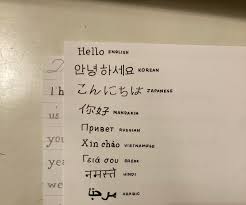 Hello ENGLISH
안녕하세요 KOREAN
こんにちは JAPANESE
你好 MANDARIN
Привет RUSSIAN
Xin chào VIETNAMESE
Γειά σου GREEK
नमस्ते HINDI
مرحبًا ARABIC